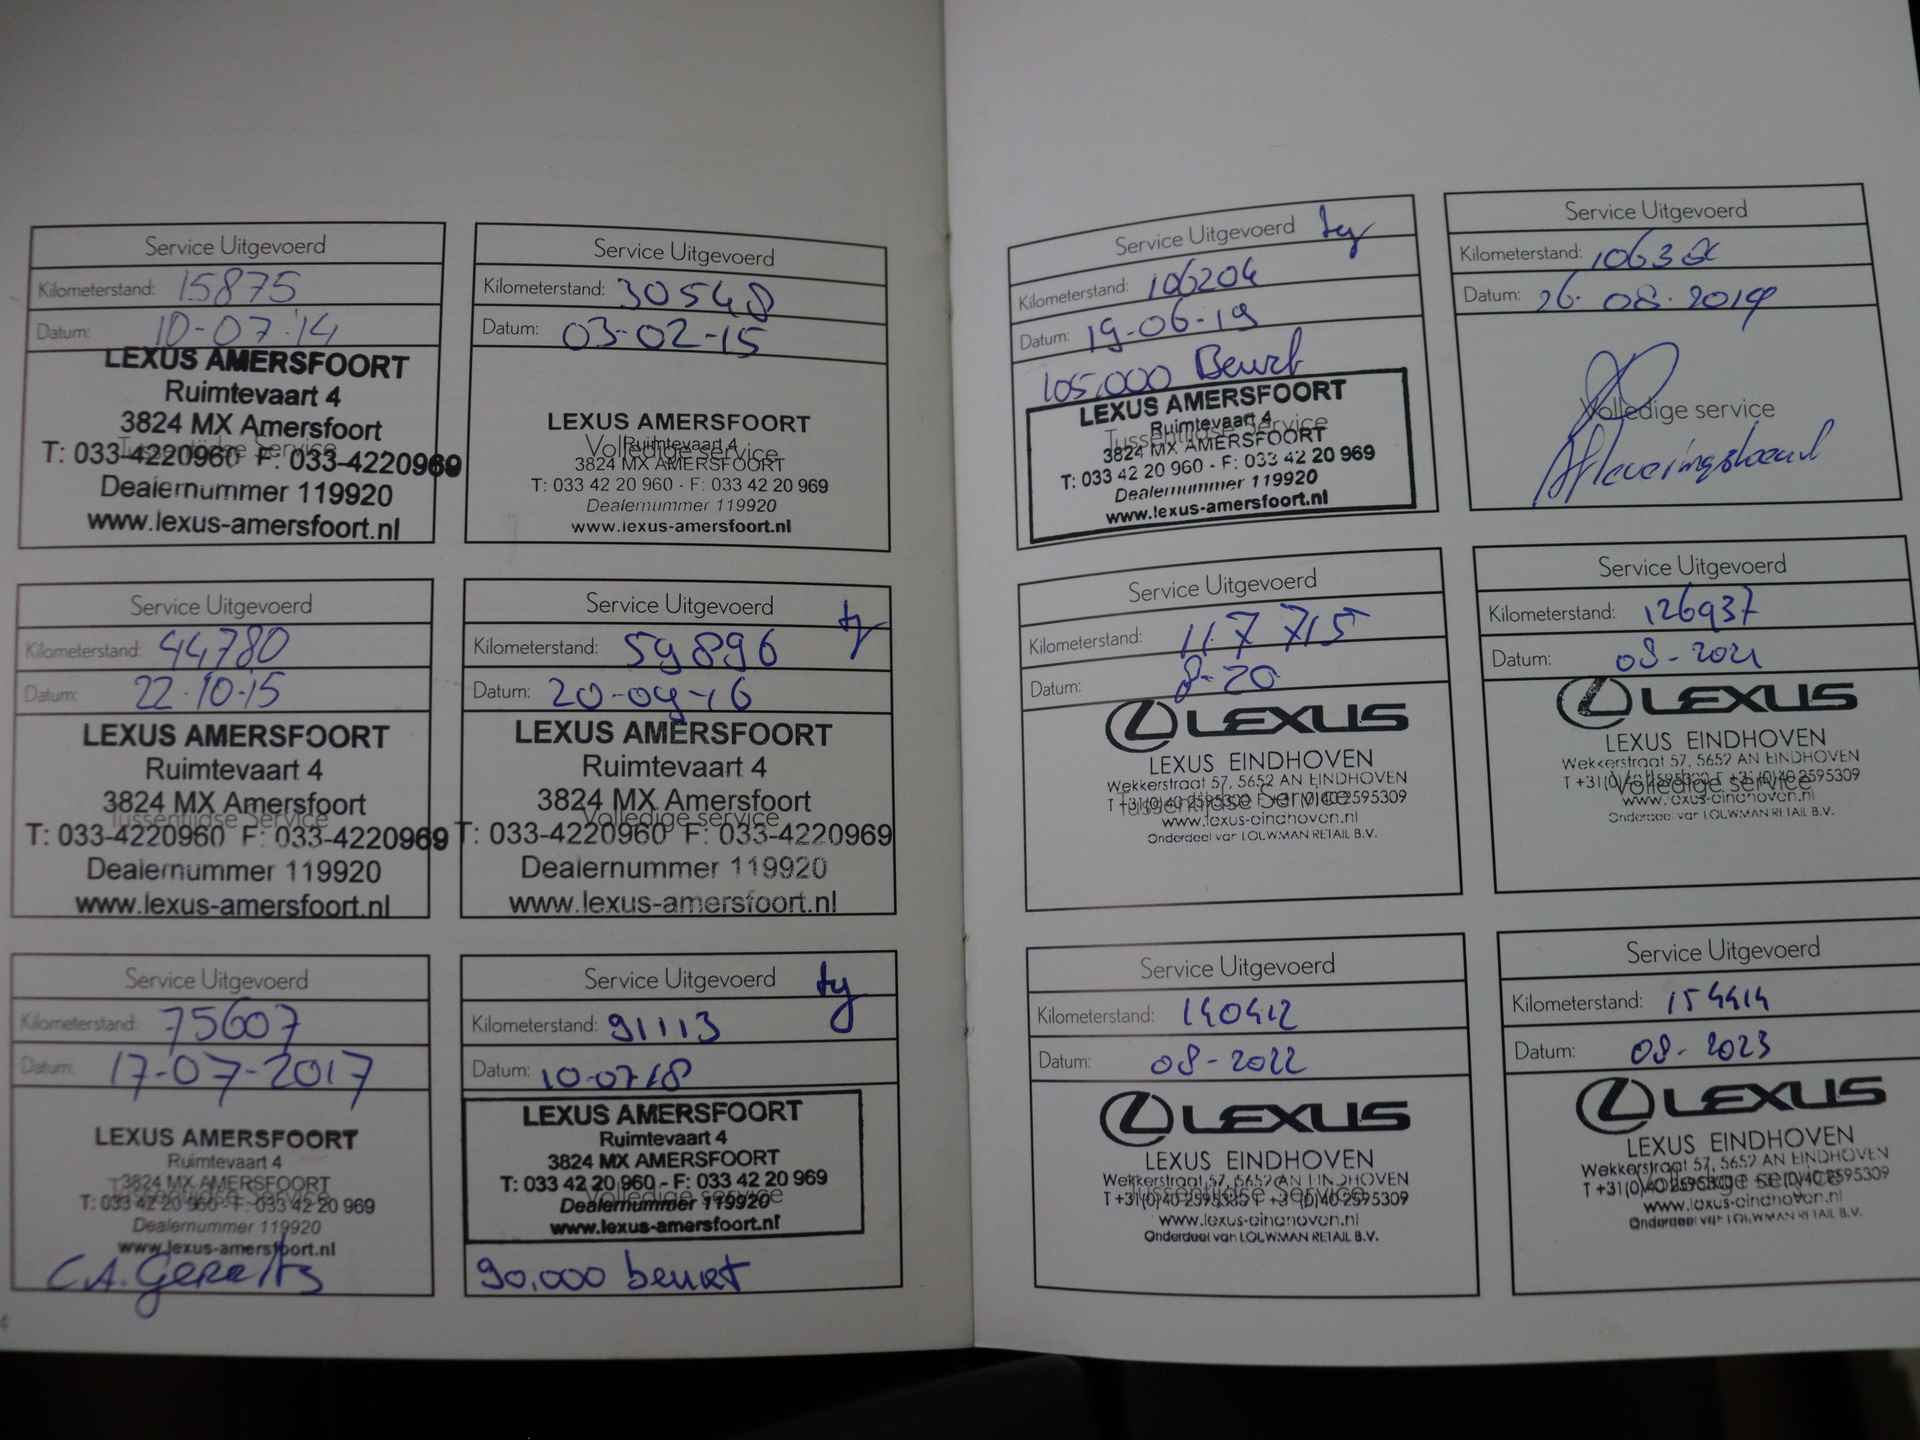 Service Uitgevoerd
Kilometerstand: 15875
Datum: 10-07-'14
LEXUS AMERSFOORT
Ruimtevaart 4
3824 MX Amersfoort
Tussentijdse Service
T: 033-4220960 F: 033-4220969
Dealernummer 119920
www.lexus-amersfoort.nl
Service Uitgevoerd
Kilometerstand: 30548
Datum: 03-02-15
LEXUS AMERSFOORT
Ruimtevaart 4
Volledige service
3824 MX AMERSFOORT
T: 033 42 20 960 - F: 033 42 20 969
Dealernummer 119920
www.lexus-amersfoort.nl
Service Uitgevoerd
Kilometerstand: 44780
Datum: 22-10-15
LEXUS AMERSFOORT
Ruimtevaart 4
3824 MX Amersfoort
Tussentijdse Service
T: 033-4220960 F: 033-4220969
Dealernummer 119920
www.lexus-amersfoort.nl
Service Uitgevoerd
Kilometerstand: 59896
Datum: 20-09-16
LEXUS AMERSFOORT
Ruimtevaart 4
3824 MX Amersfoort
Volledige service
T: 033-4220960 F: 033-4220969
Dealernummer 119920
www.lexus-amersfoort.nl
Service Uitgevoerd
Kilometerstand: 75607
Datum: 17-07-2017
LEXUS AMERSFOORT
Ruimtevaart 4
3824 MX AMERSFOORT
Tussentijdse Service
T: 033 42 20 960 - F: 033 42 20 969
Dealernummer 119920
www.lexus-amersfoort.nl
C.A. Geraets
Service Uitgevoerd
Kilometerstand: 91113
Datum: 10-07-18
LEXUS AMERSFOORT
Ruimtevaart 4
3824 MX AMERSFOORT
T: 033 42 20 960 - F: 033 42 20 969
Volledige service
Dealernummer 119920
www.lexus-amersfoort.nl
90.000 beurt
4
Service Uitgevoerd
Kilometerstand: 106204
Datum: 19-06-19
105.000 Beurt
LEXUS AMERSFOORT
Ruimtevaart 4
Tussentijdse Service
3824 MX AMERSFOORT
T: 033 42 20 960 - F: 033 42 20 969
Dealernummer 119920
www.lexus-amersfoort.nl
Service Uitgevoerd
Kilometerstand:
Datum: 26-08-2019
Volledige service
Afleveringsbeurt
Service Uitgevoerd
Kilometerstand: 117715
Datum: 8-20
LEXUS
LEXUS EINDHOVEN
Wekkerstraat 57, 5652 AN EINDHOVEN
Tussentijdse Service
T +31(0)40 2595300 F +31(0)40 2595309
www.lexus-eindhoven.nl
Onderdeel van LOUWMAN RETAIL B.V.
Service Uitgevoerd
Kilometerstand: 126937
Datum: 08-2021
LEXUS
LEXUS EINDHOVEN
Wekkerstraat 57, 5652 AN EINDHOVEN
T +31(0)40 2595300 F +31(0)40 2595309
Volledige service
www.lexus-eindhoven.nl
Onderdeel van LOUWMAN RETAIL B.V.
Service Uitgevoerd
Kilometerstand: 140412
Datum: 08-2022
LEXUS
LEXUS EINDHOVEN
Wekkerstraat 57, 5652 AN EINDHOVEN
Tussentijdse Service
T +31(0)40 2595300 F +31(0)40 2595309
www.lexus-eindhoven.nl
Onderdeel van LOUWMAN RETAIL B.V.
Service Uitgevoerd
Kilometerstand: 154414
Datum: 08-2023
LEXUS
LEXUS EINDHOVEN
Wekkerstraat 57, 5652 AN EINDHOVEN
Volledige service
T +31(0)40 2595300 F +31(0)40 2595309
www.lexus-eindhoven.nl
Onderdeel van LOUWMAN RETAIL B.V.